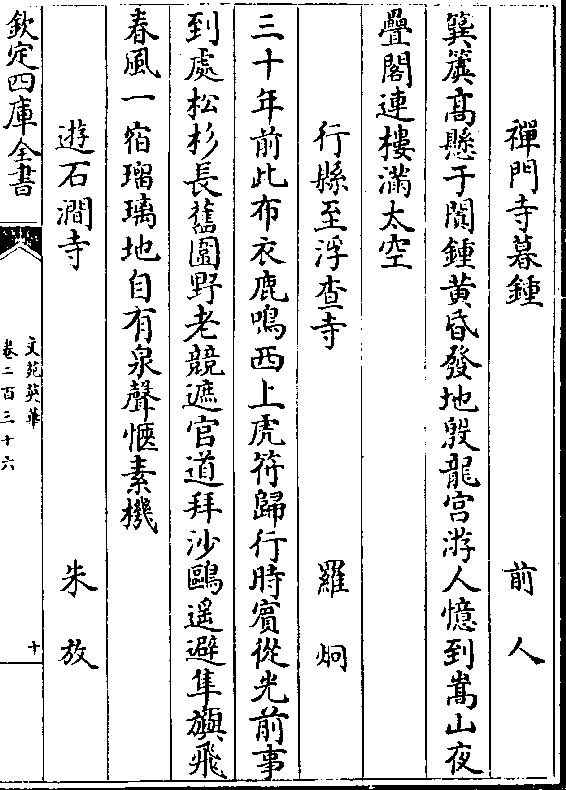 禪門寺暮鍾 前人
簨簴髙懸于閴鍾黄昏發地殷龍宫游人憶到嵩山夜
疊閣連樓滿太空
行縣至浮查寺 羅炯
三十年前此布衣鹿鳴西上虎符歸行時賓從光前事
到處松杉長舊圍野老競遮官道拜沙鷗遥避隼旟飛
春風一宿瑠璃地自有泉聲愜素機
遊石澗寺 朱放
欽定四庫全書
文苑英華
卷二百三十六
十